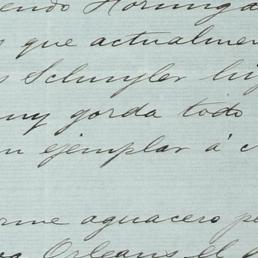 endo Horminga
que actualmen
s Schuyler hij
uy gorda todo
n ejemplar á
rme aguacero pe
Orleans el